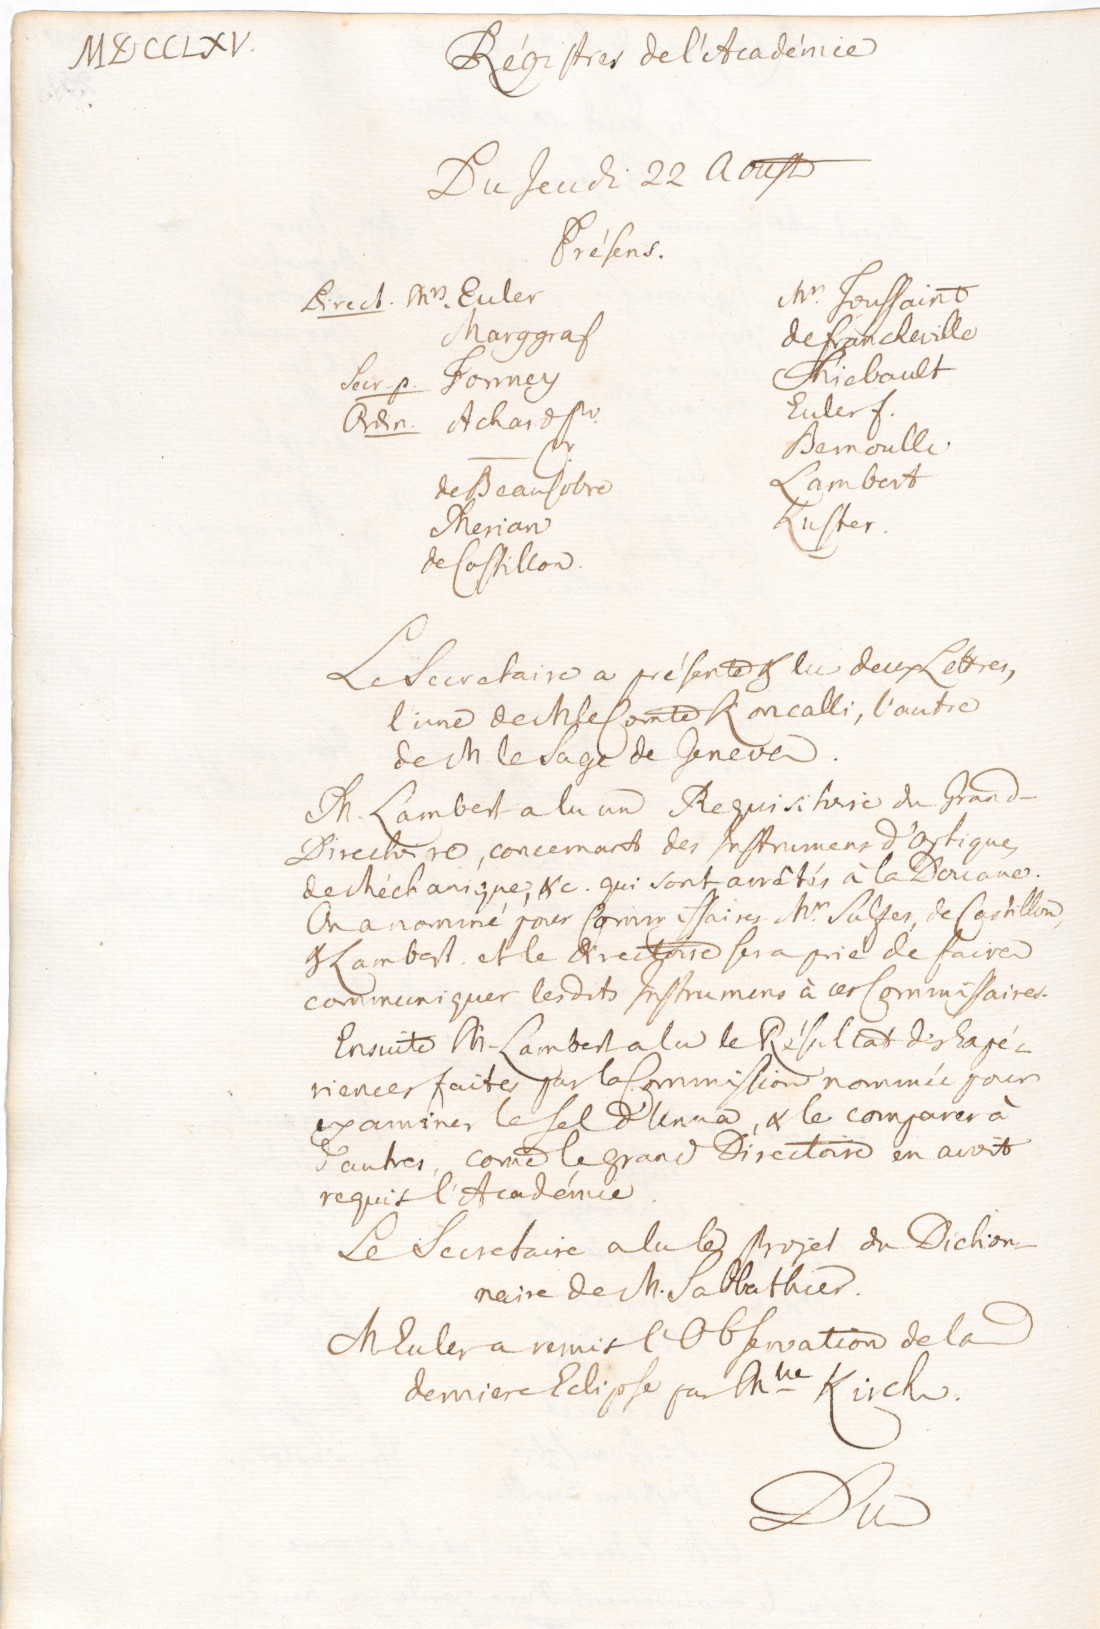 MDCCLXV.
Régistres de l'Académie
Du Jeudi 22 Aoust
Présens.
Direct. Mrs. Euler
Marggraf
Secr. p. Formey
Ordin. Achard
de Beausobre
Merian
de Castillon.
Mrs Toussaint
de Francheville
Thiebault
Euler f.
Bernoulli
Lambert
Kuster.
Le Secretaire a présenté & lu deux Lettres,
l'une de M le Comte Roncalli, l'autre
de M le Sage de Geneve.
M. Lambert a lu un Requisitoire du Grand-
Directoire, concernant des Instrumens d'Optique,
de Méchanique, &c. qui sont arrêtés à la Douane.
On a nommé pour Commissaires Mrs Sulzer, de Castillon,
& Lambert. et le directoire sera prié de faire
communiquer lesdits Instrumens à ces Commissaires.
Ensuite M. Lambert a lu le Résultat des Expé-
riences faites par la Commission nommée pour
examiner le Sel d'Unna, & le comparer à
d'autres, come le grand Directoire en avoit
requis l'Académie.
Le Secretaire a lu le projet du Diction-
naire de M. Sabbathier.
M Euler a remis l'Observation de la
derniere Eclipse par Mlle Kirch.
Du